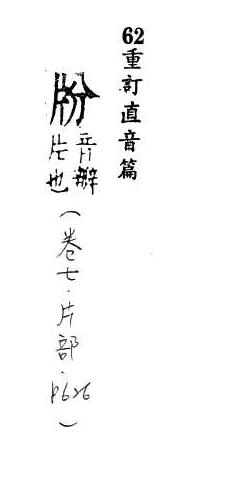 62重訂直音篇
音
片也
（卷七．片部．p626）